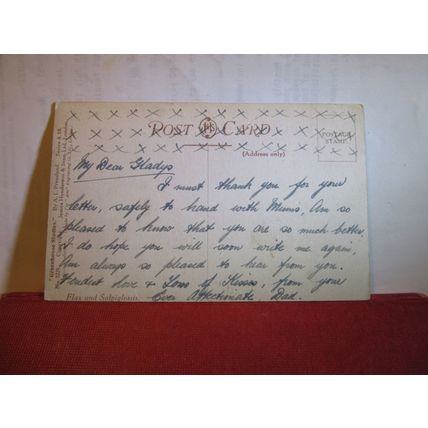 POST CARD
(Address only)
POSTAGE
STAMP.
My Dear Gladys
I must thank you for your
letter, safely to hand with Mums, Am so
pleased to know that you are so much better
I do hope you will soon write me again,
Am always so pleased to hear from you.
Fondest love & Tons of Kisses, from your
Ever Affectionate Dad.
Flax and Salpiglossis.
"Greenhouse Studies."